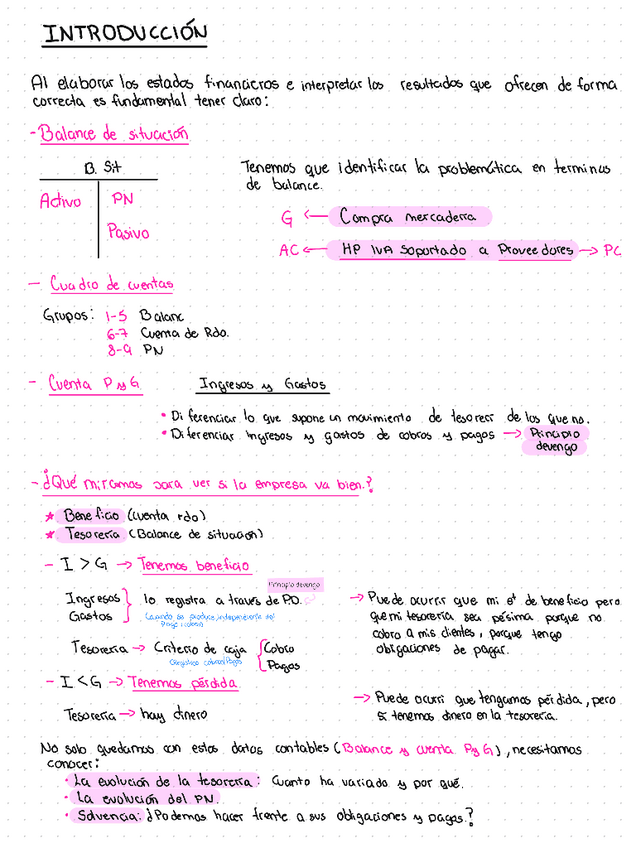 INTRODUCCIÓN
Al elaborar los estados financieros e interpretar los resultados que ofrecen de forma
correcta es fundamental tener claro:
- Balance de situación
B. Sit
Activo PN
Pasivo
Tenemos que identificar la problemática en terminos
de balance.
G ← Compra mercaderia
AC ← HP IVA Soportado a Proveedores → PC
- Cuadro de cuentas
Grupos: 1-5 Balanc
6-7 Cuenta de Rdo.
8-9 PN
- Cuenta P y G Ingresos y Gastos
• Diferenciar lo que supone un movimiento de tesorer de los que no.
• Diferenciar ingresos y gastos de cobros y pagos → Principio
devengo
- ¿Qué miramos para ver si la empresa va bien?
* Beneficio (cuenta rdo)
* Tesorería (Balance de situación)
- I > G → Tenemos beneficio
Principio devengo
Ingresos
Gastos
lo registra a través de P.D.
Cuando se produce, independiente del
Tesorería → Criterio de caja
Cobro
Pagos
→ Puede ocurrir que mi de beneficio pero
que mi tesorería sea pésima porque no
cobro a mis clientes, porque tengo
obligaciones de pagar.
- I < G → Tenemos pérdida
Tesorería → hay dinero
→ Puede ocurri que tengamos pérdida, pero
si tenemos dinero en la tesorería.
No solo quedarnos con estos datos contables (Balance y cuenta PyG), necesitamos
conocer:
• La evolución de la tesorería: Cuanto ha variado y por qué.
• La evolución del PN.
• Solvencia: ¿Podemos hacer frente a sus obligaciones y pagos?